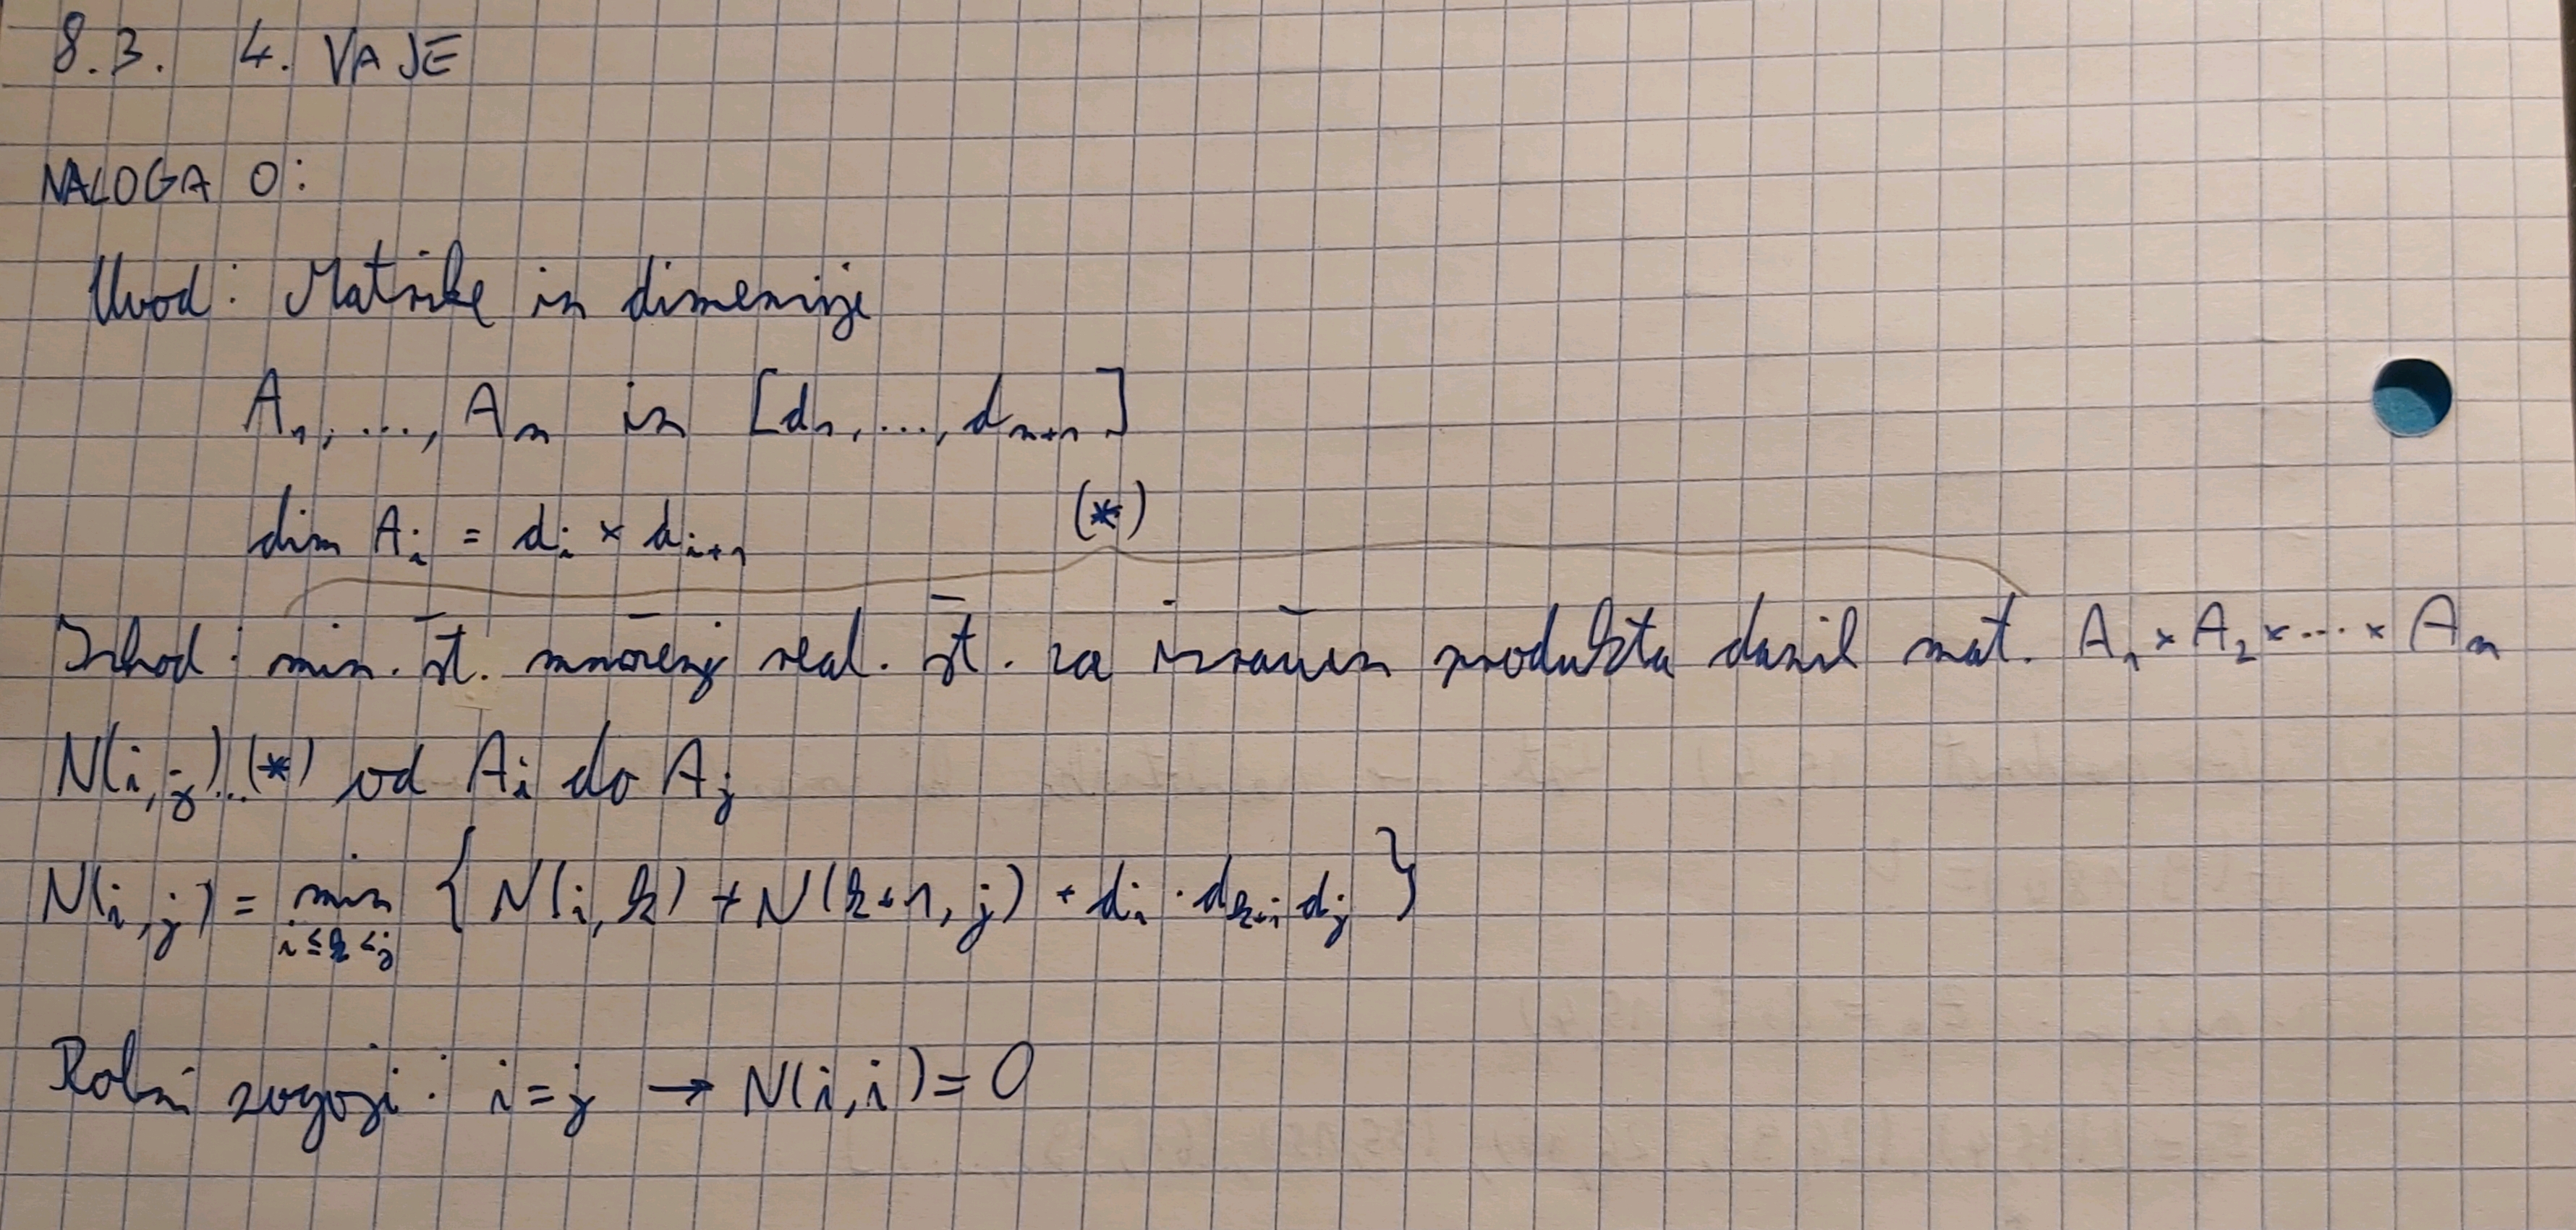 8.3. 4. VAJE
NALOGA 0:
Uvod: Matrike in dimenzije
A₁, ..., Aₙ in [d₁, ..., dₙ₊₁]
dim Aᵢ = dᵢ × dᵢ₊₁ (*)
Izhod: min. št. množenj real. št. za izračun produkta danih mat. A₁ × A₂ × ... × Aₙ
N(i,j)...(*) od Aᵢ do Aⱼ
N(i,j) = min { N(i,k) + N(k+1,j) + dᵢ · dₖ₊ᵢ dⱼ }
i ≤ k < j
Robni pogoji: i=j → N(i,i) = 0